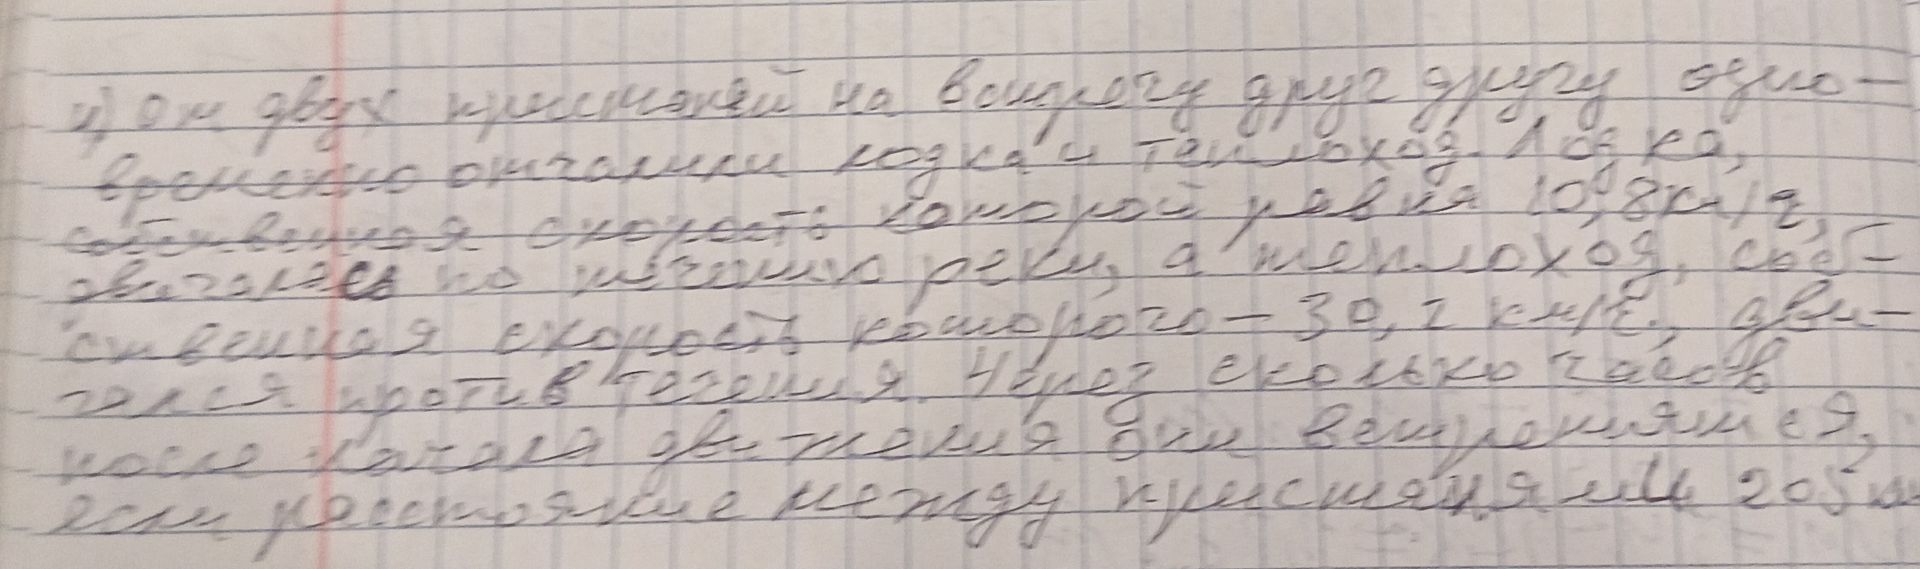 4) От двух пристаней на встречу друг другу одно-
временно отчалили лодка и теплоход. Лодка,
собственная скорость которой равна 10,8 км/ч,
двигалась по течению реки, а теплоход, соб-
ственная скорость которого – 30,2 км/ч, дви-
гался против течения. Через сколько часов
после начала движения они встретятся,
если расстояние между пристанями 205 км